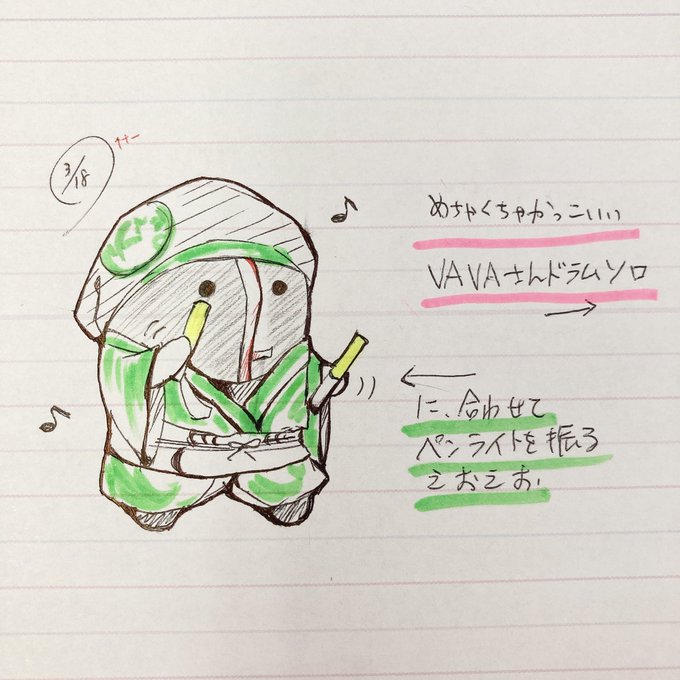 3/18
めちゃくちゃかっこいい
VAVAさんドラムソロ
に、合わせて
ペンライトを振る
えおえお。